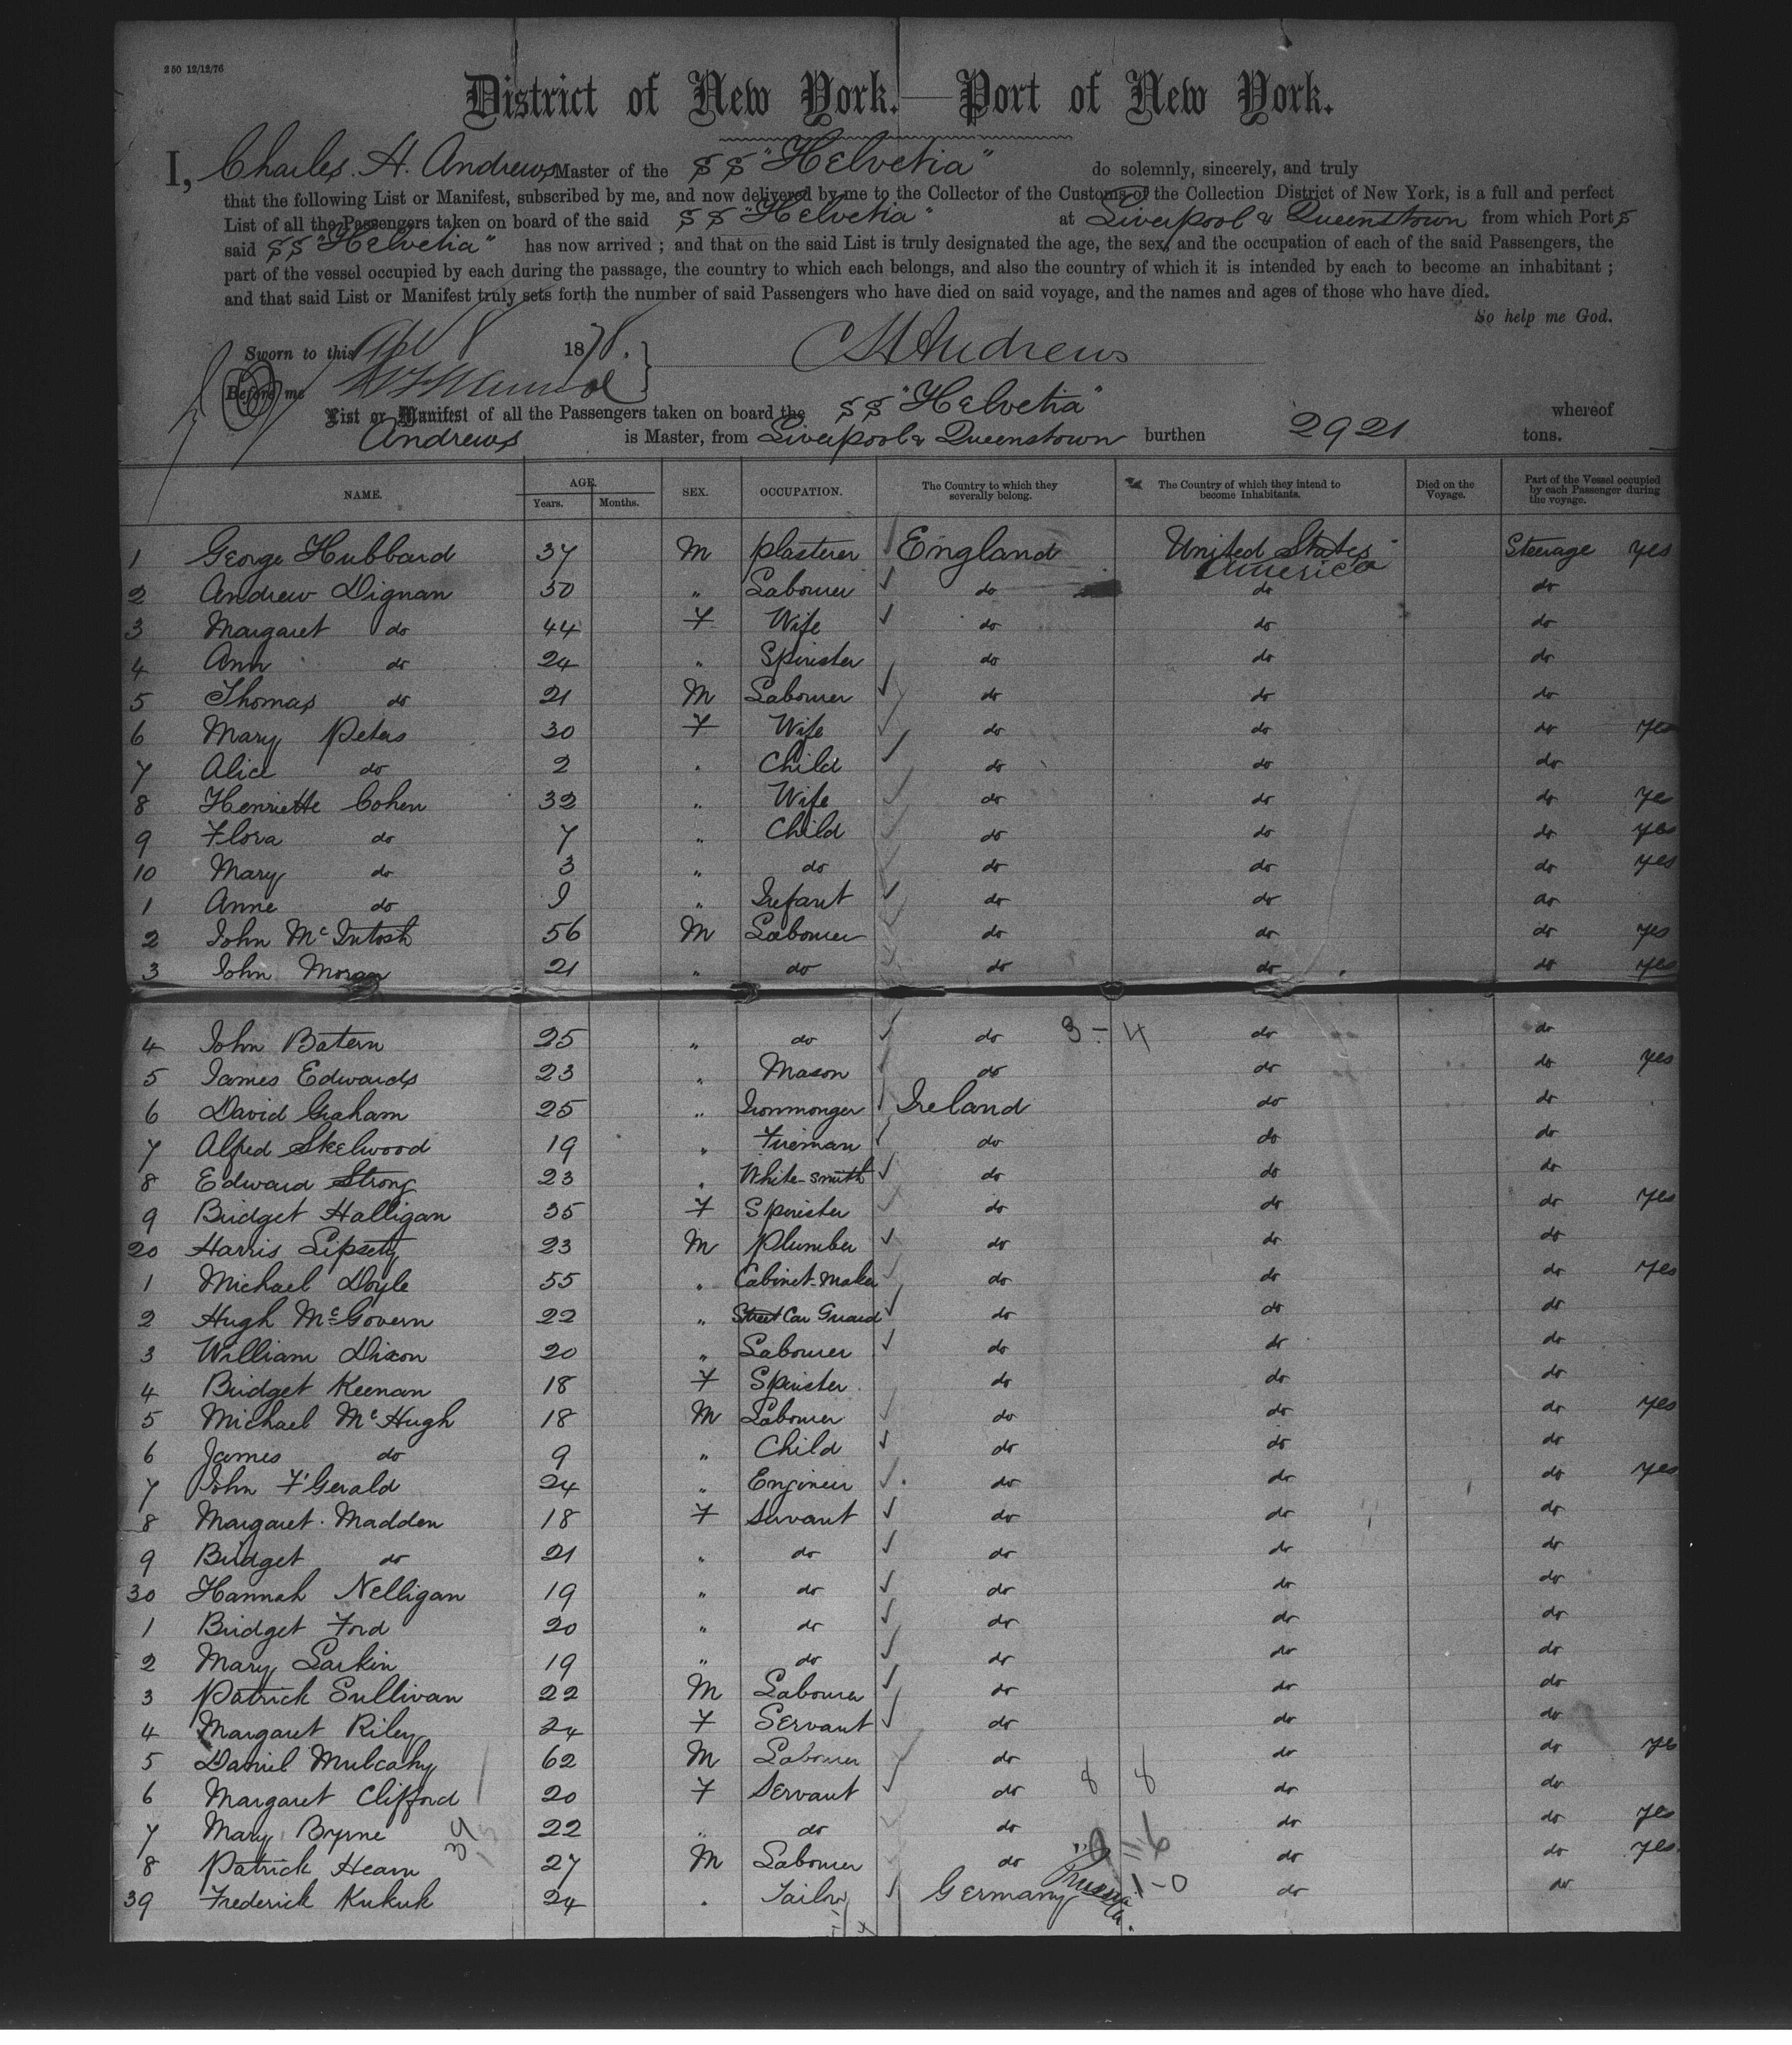 250 12/12/76
District of New York.—Port of New York.
I, Charles. H. Andrews Master of the SS "Helvetia" do solemnly, sincerely, and truly
that the following List or Manifest, subscribed by me, and now delivered by me to the Collector of the Customs of the Collection District of New York, is a full and perfect
List of all the Passengers taken on board of the said SS "Helvetia" at Liverpool & Queenstown from which Port s
said SS "Helvetia" has now arrived ; and that on the said List is truly designated the age, the sex, and the occupation of each of the said Passengers, the
part of the vessel occupied by each during the passage, the country to which each belongs, and also the country of which it is intended by each to become an inhabitant ;
and that said List or Manifest truly sets forth the number of said Passengers who have died on said voyage, and the names and ages of those who have died.
So help me God.
Sworn to this Apl 8 1878. } CH Andrews
Before me
List or Manifest of all the Passengers taken on board the SS "Helvetia" whereof
Andrews is Master, from Liverpool & Queenstown burthen 2921 tons.
NAME. AGE. Years. Months. SEX. OCCUPATION. The Country to which they severally belong. The Country of which they intend to become Inhabitants. Died on the Voyage. Part of the Vessel occupied by each Passenger during the voyage.
1 George Hubbard 37 M plasterer England United States America Steerage yes
2 Andrew Dignan 50 " Labourer do do do
3 Margaret do 44 F Wife do do do
4 Ann do 24 " Spinster do do do
5 Thomas do 21 M Labourer do do do
6 Mary Peters 30 F Wife do do do yes
7 Alice do 2 " Child do do do
8 Henriette Cohen 32 " Wife do do do ye
9 Flora do 7 " Child do do do yes
10 Mary do 3 " do do do do yes
1 Anne do 9 " Infant do do do
2 John McIntosh 56 M Labourer do do do yes
3 John Moran 21 " do do do do yes
4 John Batern 25 " do do 3-4 do do
5 James Edwards 23 " Mason do do do yes
6 David Graham 25 " Ironmonger Ireland do do
7 Alfred Skelwood 19 " Fireman do do do
8 Edward Strong 23 " White-smith do do do
9 Bridget Halligan 35 F Spinster do do do yes
20 Harris Lipsety 23 M Plumber do do do
1 Michael Doyle 55 " Cabinet-Maker do do do yes
2 Hugh McGovern 22 " Street Car Guard do do do
3 William Dixon 20 " Labourer do do do
4 Bridget Keenan 18 F Spinster do do do
5 Michael McHugh 18 M Labourer do do do yes
6 James do 9 " Child do do do
7 John F'Gerald 24 " Engineer do do do yes
8 Margaret Madden 18 F Servant do do do
9 Bridget do 21 " do do do do
30 Hannah Nelligan 19 " do do do do
1 Bridget Ford 20 " do do do do
2 Mary Larkin 19 " do do do do
3 Patrick Sullivan 22 M Labourer do do do
4 Margaret Riley 24 F Servant do do do
5 Daniel Mulcahy 62 M Labourer do do do yes
6 Margaret Clifford 20 F Servant do 8 8 do do
7 Mary Byrne 39 22 " do do do do yes
8 Patrick Hearn 27 M Labourer do do do yes
39 Frederick Kukuk 24 " Tailor Germany Prussia 1-0 do do